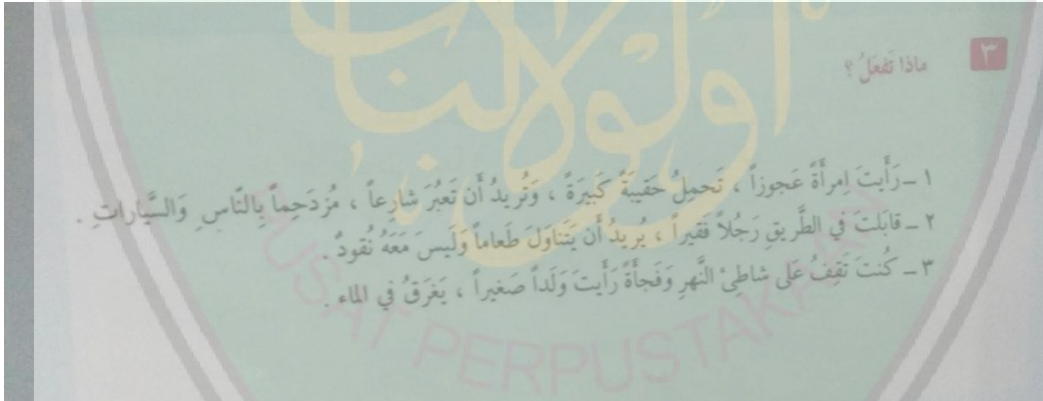 ٣ ماذا تَفعَلُ ؟
١ ـ رَأَيتَ اِمرأَةً عَجوزاً ، تَحمِلُ حَقيبَةً كَبيرَةً ، وَتُريدُ أَن تَعبُرَ شارِعاً ، مُزدَحِماً بِالنّاسِ وَالسَّياراتِ .
٢ ـ قابَلتَ في الطَّريقِ رَجُلاً فَقيراً ، يُريدُ أَن يَتَناوَلَ طَعاماً وَلَيسَ مَعَهُ نُقودٌ .
٣ ـ كُنتَ تَقِفُ عَلى شاطِئِ النَّهرِ وَفَجأَةً رَأَيتَ وَلَداً صَغيراً ، يَغرَقُ في الماء .
PUSAT PERPUSTAKAAN